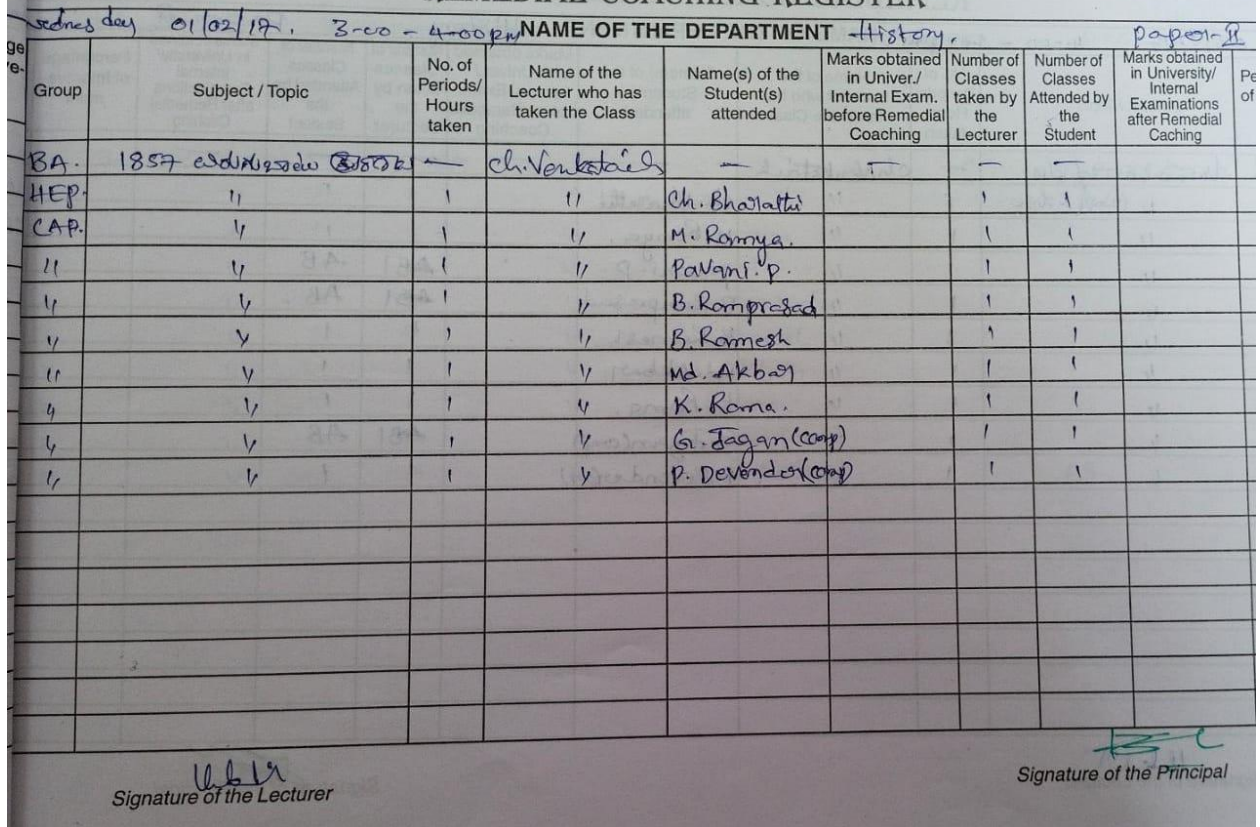 REMEDIAL COACHING REGISTER
wednesday 01/02/17. 3-00 - 4-00 pm NAME OF THE DEPARTMENT History. paper-II
Group Subject / Topic No. of Periods/ Hours taken Name of the Lecturer who has taken the Class Name(s) of the Student(s) attended Marks obtained in Univer./ Internal Exam. before Remedial Coaching Number of Classes taken by the Lecturer Number of Classes Attended by the Student Marks obtained in University/ Internal Examinations after Remedial Caching Pe of
BA. 1857 — — — —
HEP. " 1 " Ch. Bharathi 1 1
CAP. " 1 " M. Ramya. 1 1
" " 1 " Pavani. P. 1 1
" " 1 " B. Ramprasad 1 1
" " 1 " B. Ramesh 1 1
" " 1 " Md. Akbar 1 1
" " 1 " K. Rama. 1 1
" " 1 " G. Jagan (comp) 1 1
" " 1 " P. Devender (comp) 1 1
Signature of the Lecturer
Signature of the Principal